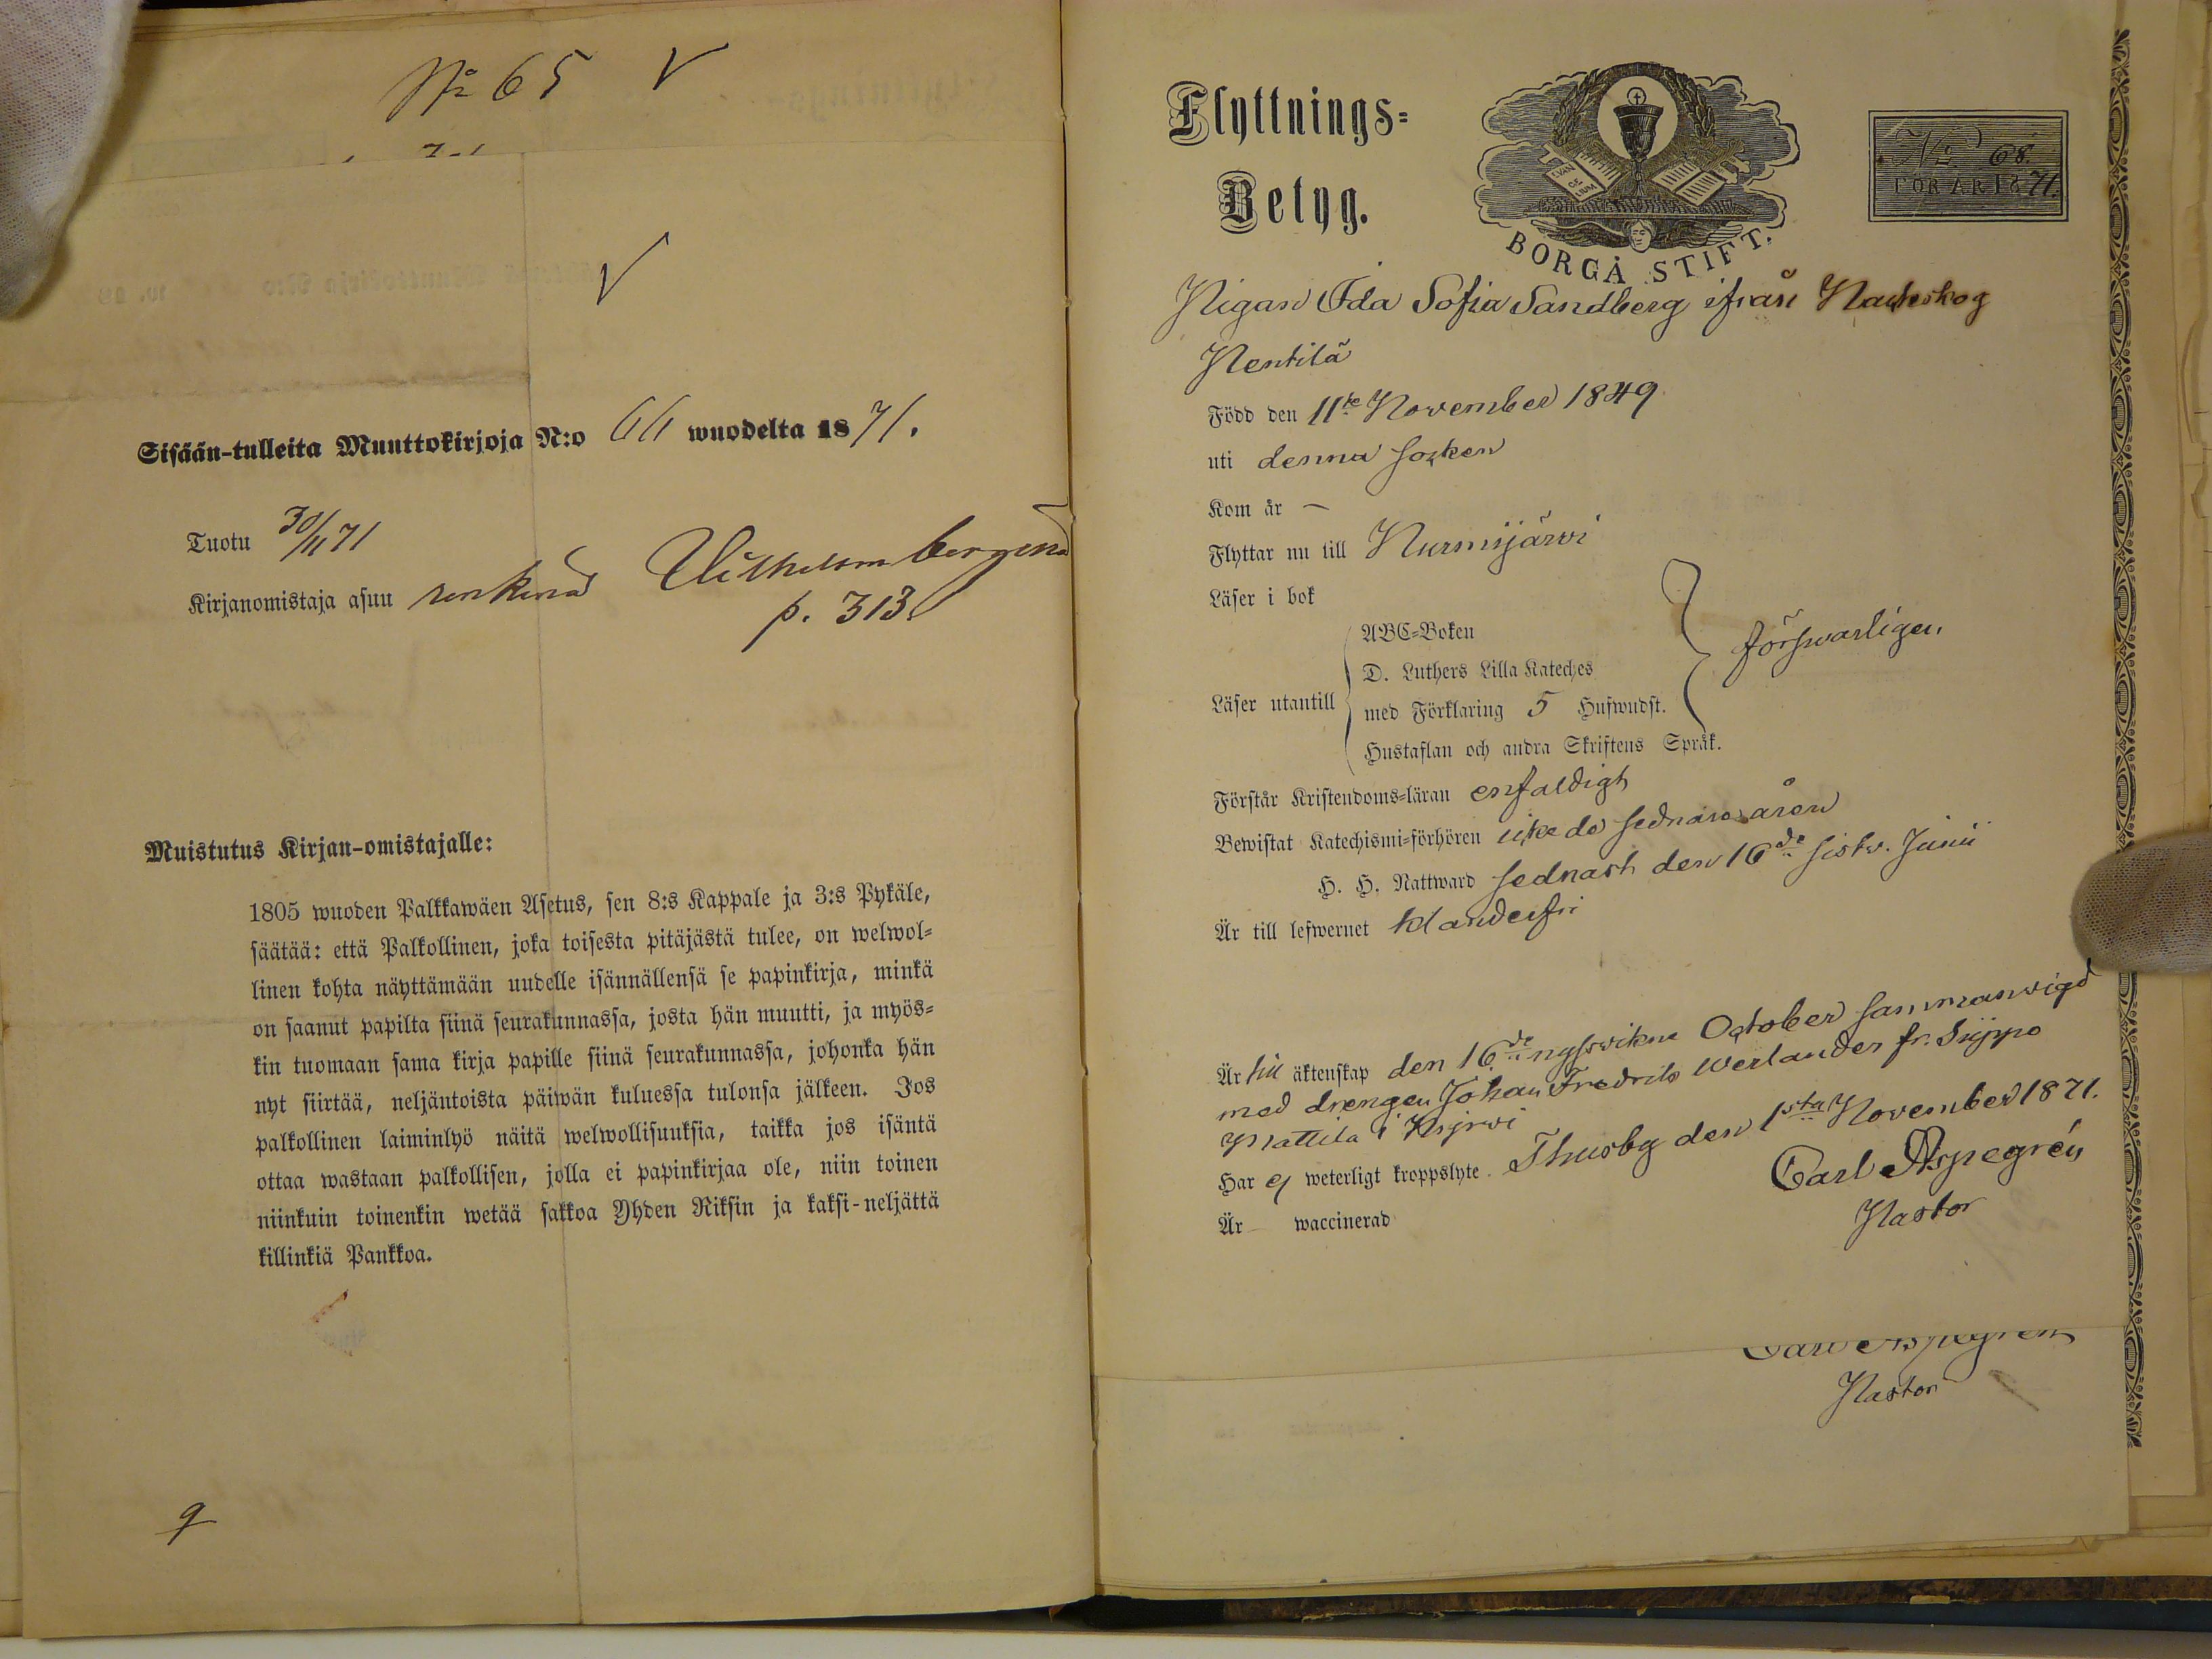 No 65 V
V
Sisään-tulleita Muuttokirjoja N:o 66 wuodelta 1871.
Tuotu 30/11 71
Kirjanomistaja asuu renkinä
p. 313
Muistutus Kirjan-omistajalle:
1805 wuoden Palkkawäen Asetus, sen 8:s Kappale ja 3:s Pykäle,
säätää: että Palkollinen, joka toisesta pitäjästä tulee, on welwol=
linen kohta näyttämään uudelle isännällensä se papinkirja, minkä
on saanut papilta siinä seurakunnassa, josta hän muutti, ja myös=
kin tuomaan sama kirja papille siinä seurakunnassa, johonka hän
nyt siirtää, neljäntoista päiwän kuluessa tulonsa jälkeen. Jos
palkollinen laiminlyö näitä welwollisuuksia, taikka jos isäntä
ottaa wastaan palkollisen, jolla ei papinkirjaa ole, niin toinen
niinkuin toinenkin wetää sakkoa Yhden Riksin ja kaksi-neljättä
killinkiä Pankkoa.
Flyttnings=
Betyg.
EVAN
GE
LIUM
BORGÅ STIFT.
No 68.
FÖR ÅR 1871.
Pigan Ida Sofia Sandberg ifrån
Pentilä
Född den 11te November 1849
uti denna socken
Kom år —
Flyttar nu till Nurmijärvi
Läser i bok
ABC=Boken
D. Luthers Lilla Kateches
försvarligen
Läser utantill
med Förklaring 5 Hufwudst.
Hustaflan och andra Skriftens Språk.
Förstår Kristendoms=läran enfaldigt
Bewistat Katechismi=förhören icke de sednare åren
H. H. Nattward sednast den 16de sistl. Junii
Är till lefwernet klanderfri
Är till äktenskap den 16de October sammanvigd
med drengen Johan Fredrik Werlander fr. Suippo
Mattila i
Har ej weterligt kroppslyte. Thusby den 1sta November 1871.
Är — waccinerad
Carl Aspegrén
Pastor
Carl Aspegrén
Pastor